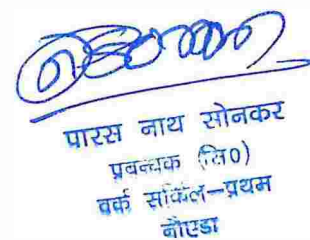 पारस नाथ सोनकर
प्रबन्धक (सि0)
वर्क सर्किल-प्रथम
नौएडा